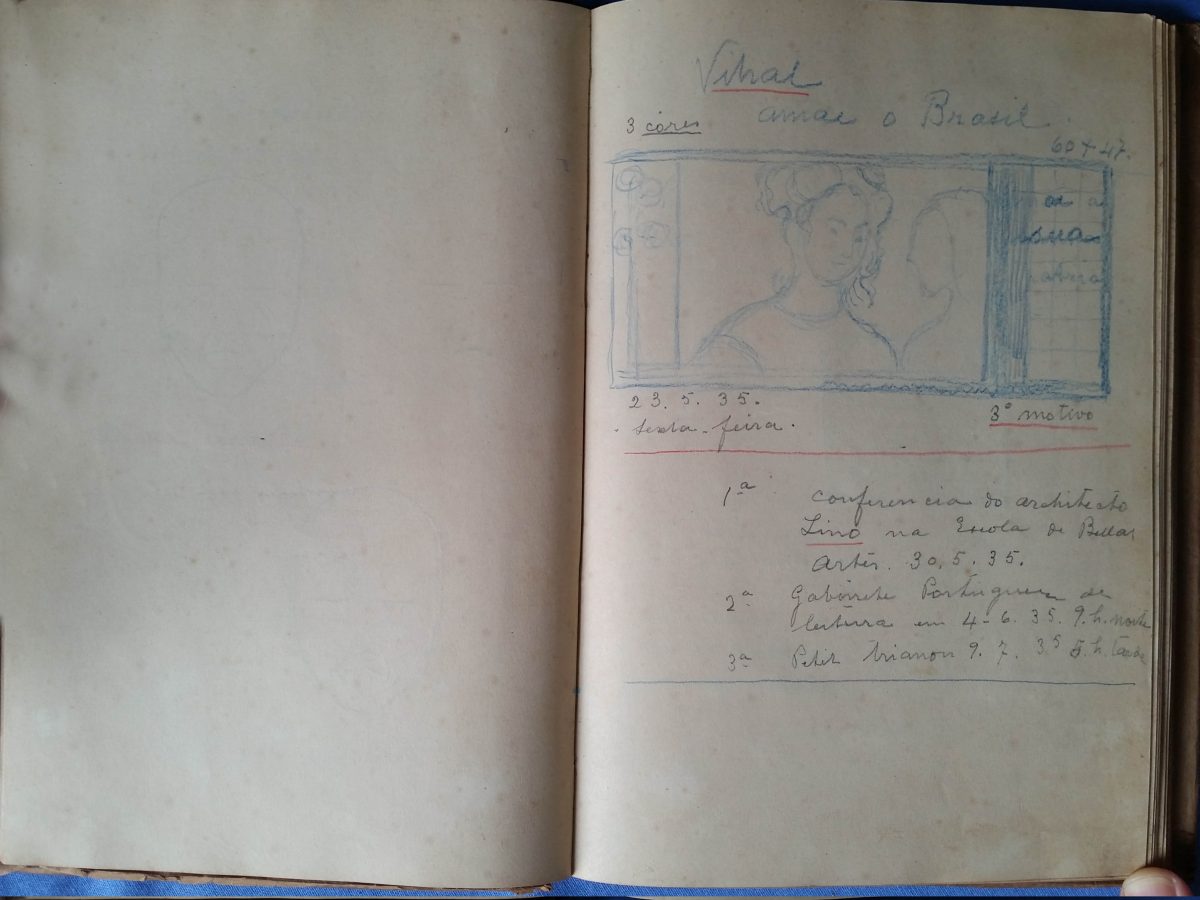 Vitral
amae o Brasil.
3 côres
60 + 47.
sua
23. 5. 35.
sexta-feira.
3º motivo
1ª conferencia do architecto
Lino na Escola de Bellas
Artes. 30. 5. 35.
2ª Gabinete Portuguez de
leitura em 4-6. 35. 9. h. noite
3ª Petit trianon 9. 7. 35 5. h. tarde